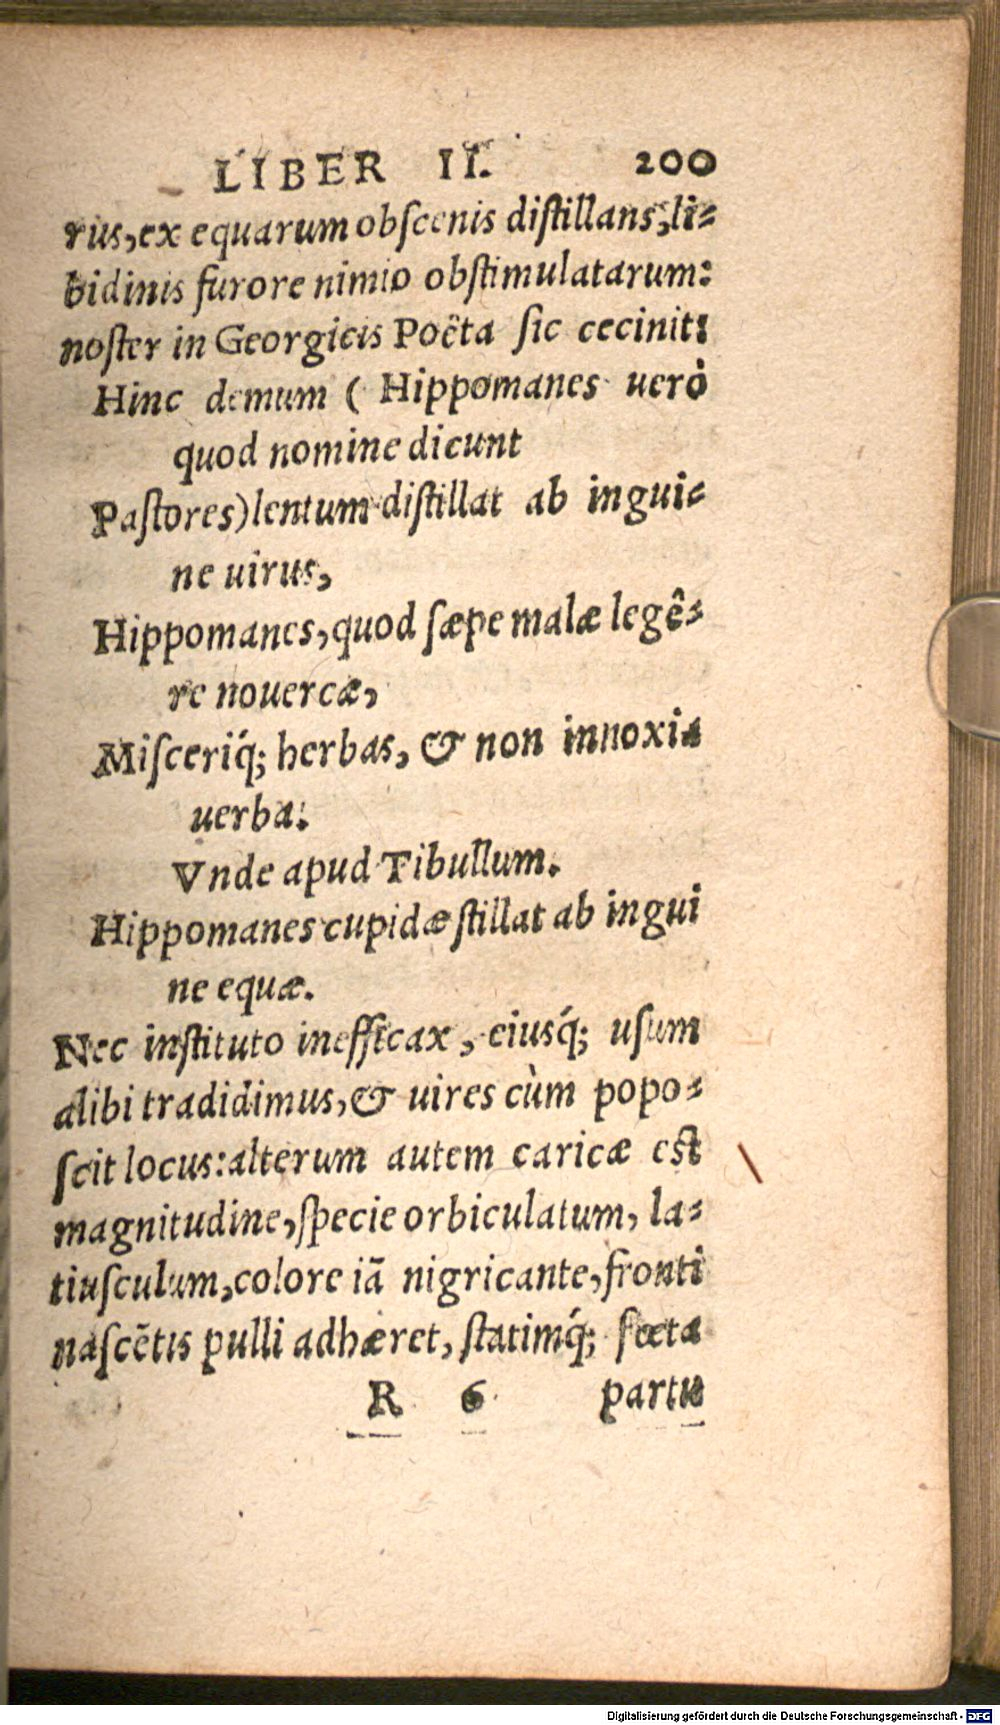 LIBER II. 200
rus, ex equarum obscenis distillans, li-
bidinis furore nimio obstimulatarum:
noster in Georgicis Poëta sic cecinit:
Hinc demum ( Hippomanes uerò
quod nomine dicunt
Pastores) lentum distillat ab ingui-
ne uirus,
Hippomanes, quod sæpe malæ legê-
re nouercæ,
Misceriq́; herbas, & non innoxia
uerba.
Vnde apud Tibullum.
Hippomanes cupidæ stillat ab ingui
ne equæ.
Nec instituto inefficax, eiusq́; usum
alibi tradidimus, & uires cùm popo-
scit locus: alterum autem caricæ est
magnitudine, specie orbiculatum, la-
tiusculum, colore iã nigricante, fronti
nascẽtis pulli adhæret, statimq́; fœta
R 6 partu
Digitalisierung gefördert durch die Deutsche Forschungsgemeinschaft - DFG